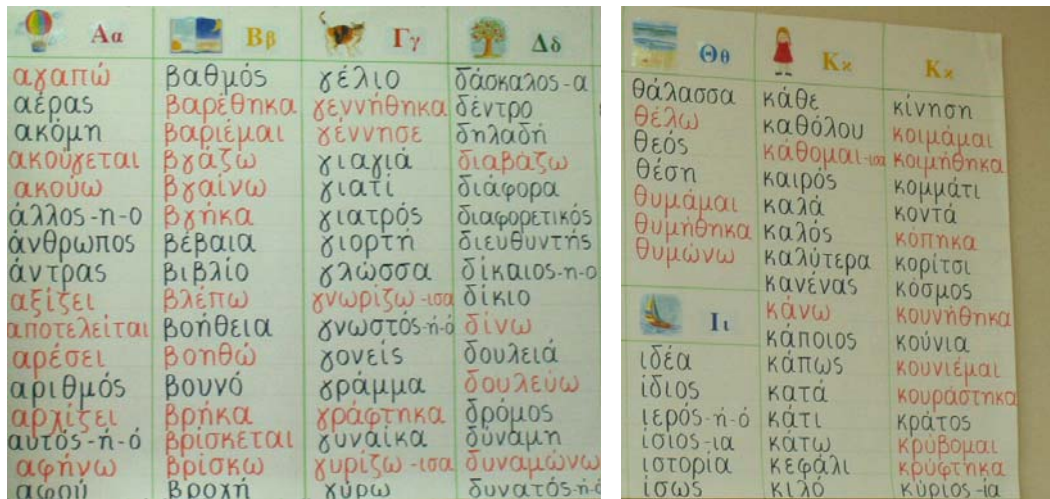 Αα
αγαπώ
αέρας
ακόμη
ακούγεται
ακούω
άλλος-η-ο
άνθρωπος
άντρας
αξίζει
αποτελείται
αρέσει
αριθμός
αρχίζει
αυτός-ή-ό
αφήνω
αφού
Ββ
βαθμός
βαρέθηκα
βαριέμαι
βγάζω
βγαίνω
βγήκα
βέβαια
βιβλίο
βλέπω
βοήθεια
βοηθώ
βουνό
βρήκα
βρίσκεται
βρίσκω
βροχή
Γγ
γέλιο
γεννήθηκα
γέννησε
γιαγιά
γιατί
γιατρός
γιορτή
γλώσσα
γνωρίζω-ισα
γνωστός-ή-ό
γονείς
γράμμα
γράφτηκα
γυναίκα
γυρίζω-ισα
γύρω
Δδ
δάσκαλος-α
δέντρο
δηλαδή
διαβάζω
διάφορα
διαφορετικός
διευθυντής
δίκαιος-η-ο
δίκιο
δίνω
δουλειά
δουλεύω
δρόμος
δύναμη
δυναμώνω
δυνατός-ή-ό
Θθ
θάλασσα
θέλω
θεός
θέση
θυμάμαι
θυμήθηκα
θυμώνω
Ιι
ιδέα
ίδιος
ιερός-ή-ό
ίσιος-ια
ιστορία
ίσως
Κκ
κάθε
καθόλου
κάθομαι-ισα
καιρός
καλά
καλός
καλύτερα
κανένας
κάνω
κάποιος
κάπως
κατά
κάτι
κάτω
κεφάλι
κιλό
Κκ
κίνηση
κοιμάμαι
κοιμήθηκα
κομμάτι
κοντά
κόπηκα
κορίτσι
κόσμος
κουνήθηκα
κούνια
κουνιέμαι
κουράστηκα
κράτος
κρύβομαι
κρύφτηκα
κύριος-ία